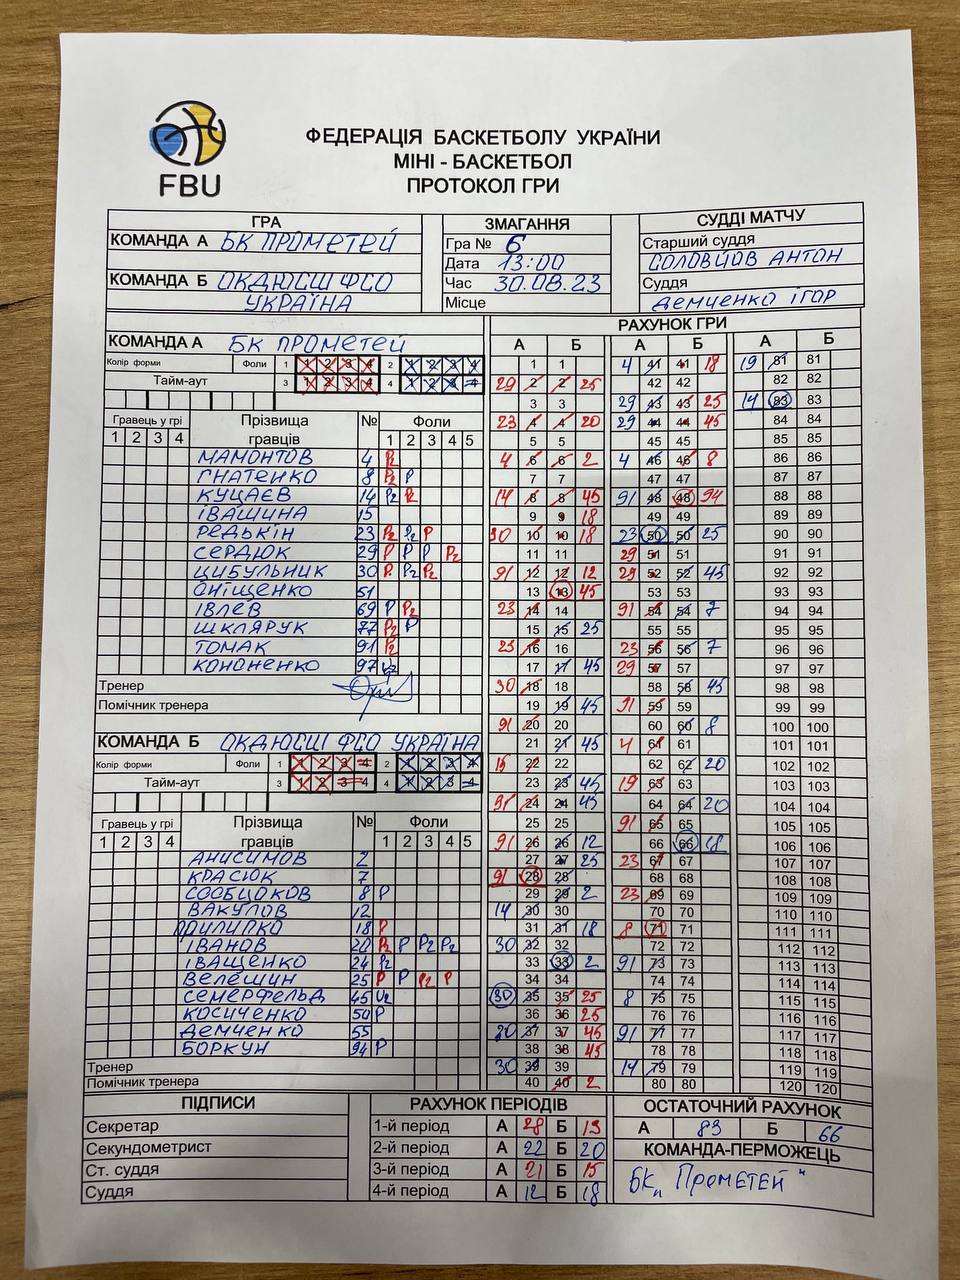 FBU
ФЕДЕРАЦІЯ БАСКЕТБОЛУ УКРАЇНИ
МІНІ - БАСКЕТБОЛ
ПРОТОКОЛ ГРИ
ГРА
КОМАНДА А БК ПРОМЕТЕЙ
КОМАНДА Б ОКДЮСШ ФСО
УКРАЇНА
ЗМАГАННЯ
Гра № 6
Дата 13:00
Час 30.08.23
Місце
СУДДІ МАТЧУ
Старший суддя
СОЛОВЙОВ АНТОН
Суддя
ДЕМЧЕНКО ІГОР
КОМАНДА А БК ПРОМЕТЕЙ
Колір форми Фоли 1 1 2 3 4 2 1 2 3 4
Тайм-аут 3 1 2 3 4 4 1 2 3 4
Гравець у грі Прізвища № Фоли
1 2 3 4 гравців 1 2 3 4 5
МАМОНТОВ 4 P2
ГНАТЕНКО 8 P2 P
КУЦАЄВ 14 P2 P2
ІВАШИНА 15
РЕДЬКІН 23 P2 P2 P
СЕРДЮК 29 P P P P2
ЦИБУЛЬНИК 30 P P2 P2
ОНІЩЕНКО 51
ІВЛЕВ 69 P P2
ШКЛЯРУК 77 P2 P
ТОМАК 91 P2
КОНОНЕНКО 97 U2
Тренер
Помічник тренера
КОМАНДА Б ОКДЮСШ ФСО УКРАЇНА
Колір форми Фоли 1 1 2 3 4 2 1 2 3 4
Тайм-аут 3 1 2 3 4 4 1 2 3 4
Гравець у грі Прізвища № Фоли
1 2 3 4 гравців 1 2 3 4 5
АНИСИМОВ 2
КРАСЮК 7
8 P
ВАКУЛОВ 12
ПОИЛИПКО 18 P
ІВАНОВ 20 P2 P P2 P2
ІВАЩЕНКО 24 P2
ВЕЛЕШИН 25 P P P2 P
СЕМЕРФЕЛЬД 45 U2
КОСИЧЕНКО 50 P
ДЕМЧЕНКО 55
БОРКУН 94 P
Тренер
Помічник тренера
РАХУНОК ГРИ
А Б А Б А Б
1 1
29 2 2 25
3 3
23 4 4 20
5 5
4 6 6 2
7 7
14 8 8 45
9 9 18
30 10 10 18
11 11
91 12 12 12
13 13 45
23 14 14
15 15 25
23 16 16
17 17 45
30 18 18
19 19 45
91 20 20
21 21 45
15 22 22
23 23 45
91 24 24 45
25 25
91 26 26 12
27 27 25
91 28 28
29 29 2
14 30 30
31 31 18
30 32 32
33 33 2
34 34
30 35 35 25
36 36 25
30 37 37 45
38 38 45
30 39 39
40 40 2
4 41 41 18
42 42
29 43 43 25
29 44 44 45
45 45
4 46 46 8
47 47
91 48 48 94
49 49
23 50 50 25
29 51 51
29 52 52 45
53 53
91 54 54 7
55 55
23 56 56 7
29 57 57
58 58 45
91 59 59
60 60 8
4 61 61
62 62 20
19 63 63
64 64 20
91 65 65
66 66 18
23 67 67
68 68
23 69 69
70 70
8 71 71
72 72
91 73 73
74 74
8 75 75
76 76
91 77 77
78 78
14 79 79
80 80
19 81 81
82 82
14 83 83
84 84
85 85
86 86
87 87
88 88
89 89
90 90
91 91
92 92
93 93
94 94
95 95
96 96
97 97
98 98
99 99
100 100
101 101
102 102
103 103
104 104
105 105
106 106
107 107
108 108
109 109
110 110
111 111
112 112
113 113
114 114
115 115
116 116
117 117
118 118
119 119
120 120
ПІДПИСИ
Секретар
Секундометрист
Ст. суддя
Суддя
РАХУНОК ПЕРІОДІВ
1-й період А 28 Б 13
2-й період А 22 Б 20
3-й період А 21 Б 15
4-й період А 12 Б 18
ОСТАТОЧНИЙ РАХУНОК
А 83 Б 66
КОМАНДА-ПЕРЕМОЖЕЦЬ
БК „Прометей"